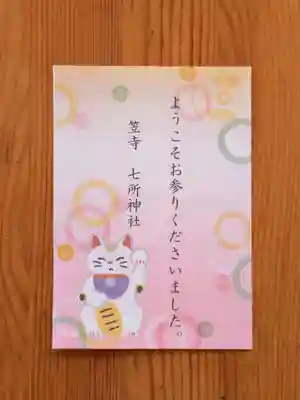 ようこそお参りくださいました。
笠寺 七所神社